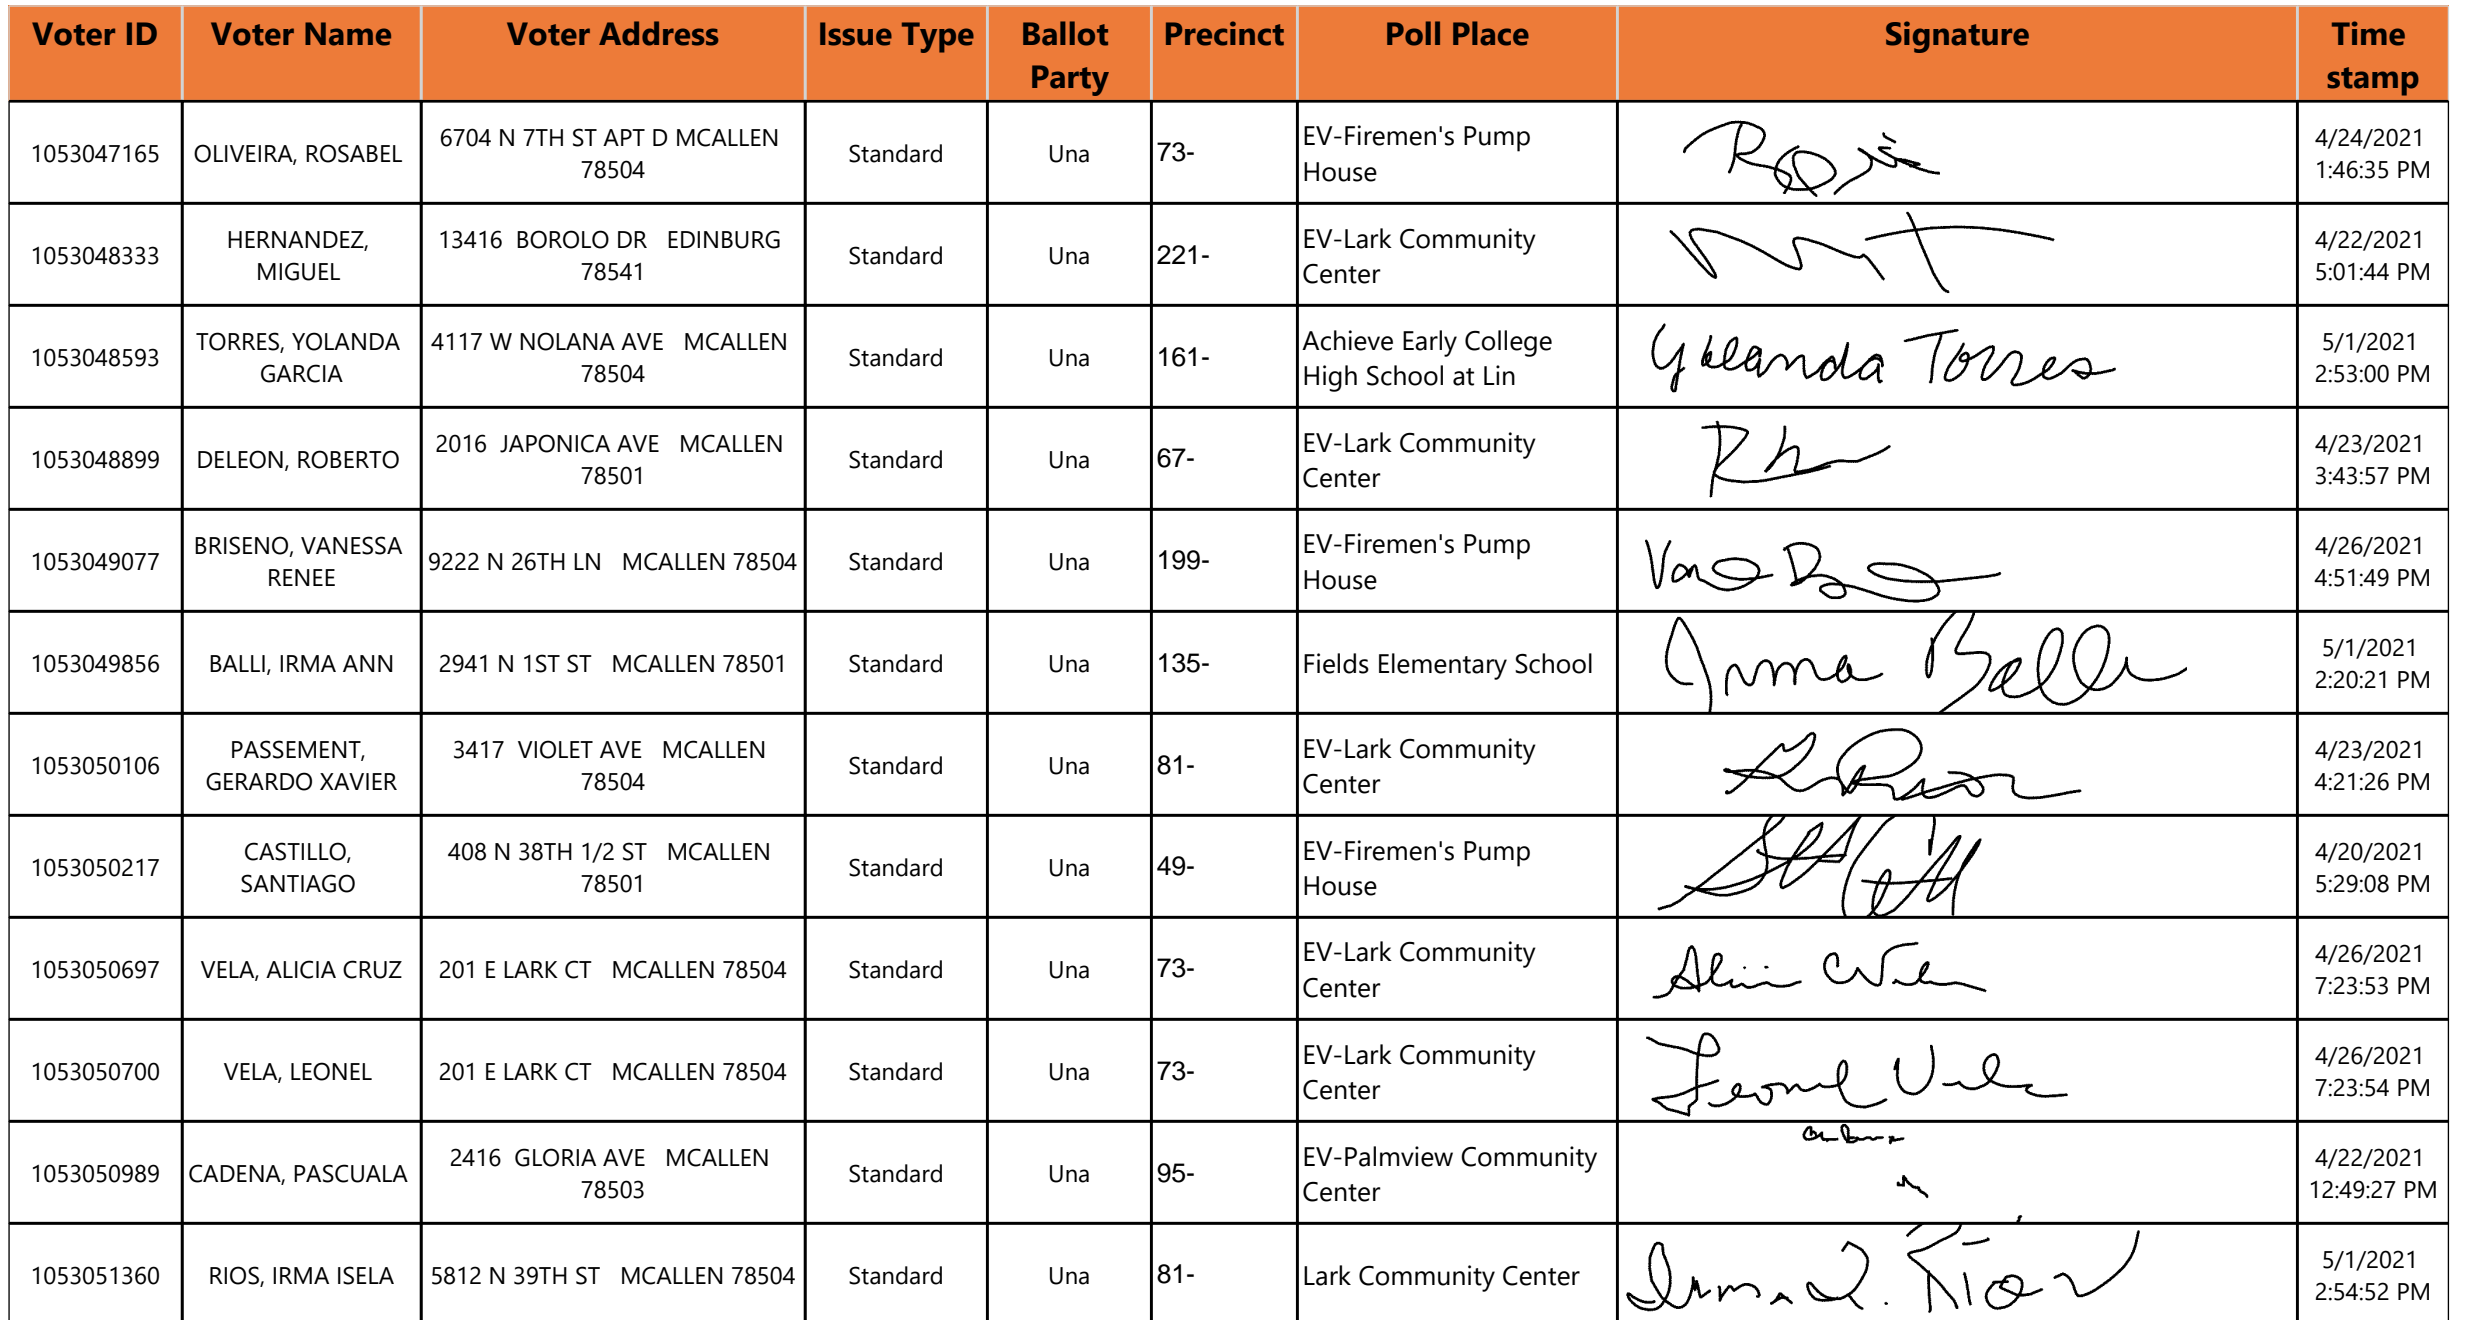 Voter ID Voter Name Voter Address Issue Type Ballot Party Precinct Poll Place Signature Time stamp
1053047165 OLIVEIRA, ROSABEL 6704 N 7TH ST APT D MCALLEN 78504 Standard Una 73- EV-Firemen's Pump House 4/24/2021 1:46:35 PM
1053048333 HERNANDEZ, MIGUEL 13416 BOROLO DR EDINBURG 78541 Standard Una 221- EV-Lark Community Center 4/22/2021 5:01:44 PM
1053048593 TORRES, YOLANDA GARCIA 4117 W NOLANA AVE MCALLEN 78504 Standard Una 161- Achieve Early College High School at Lin Yolanda Torres 5/1/2021 2:53:00 PM
1053048899 DELEON, ROBERTO 2016 JAPONICA AVE MCALLEN 78501 Standard Una 67- EV-Lark Community Center 4/23/2021 3:43:57 PM
1053049077 BRISENO, VANESSA RENEE 9222 N 26TH LN MCALLEN 78504 Standard Una 199- EV-Firemen's Pump House 4/26/2021 4:51:49 PM
1053049856 BALLI, IRMA ANN 2941 N 1ST ST MCALLEN 78501 Standard Una 135- Fields Elementary School Irma Balli 5/1/2021 2:20:21 PM
1053050106 PASSEMENT, GERARDO XAVIER 3417 VIOLET AVE MCALLEN 78504 Standard Una 81- EV-Lark Community Center 4/23/2021 4:21:26 PM
1053050217 CASTILLO, SANTIAGO 408 N 38TH 1/2 ST MCALLEN 78501 Standard Una 49- EV-Firemen's Pump House 4/20/2021 5:29:08 PM
1053050697 VELA, ALICIA CRUZ 201 E LARK CT MCALLEN 78504 Standard Una 73- EV-Lark Community Center 4/26/2021 7:23:53 PM
1053050700 VELA, LEONEL 201 E LARK CT MCALLEN 78504 Standard Una 73- EV-Lark Community Center Leonel Vela 4/26/2021 7:23:54 PM
1053050989 CADENA, PASCUALA 2416 GLORIA AVE MCALLEN 78503 Standard Una 95- EV-Palmview Community Center 4/22/2021 12:49:27 PM
1053051360 RIOS, IRMA ISELA 5812 N 39TH ST MCALLEN 78504 Standard Una 81- Lark Community Center Irma I. Rios 5/1/2021 2:54:52 PM